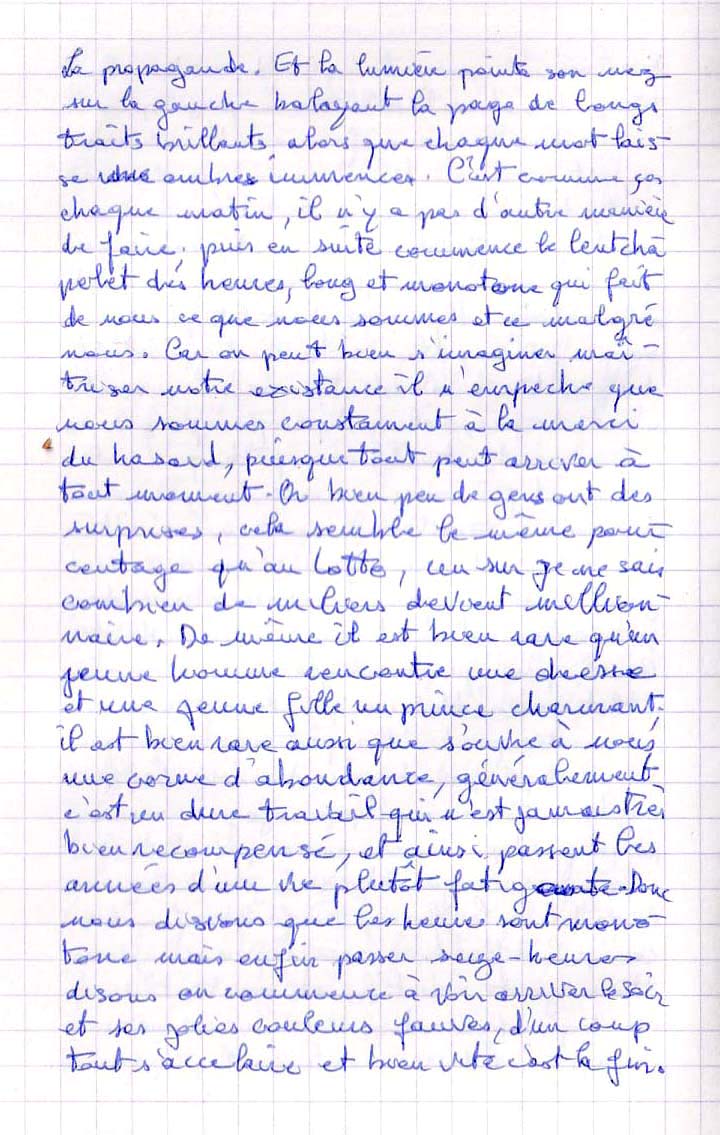 La propagande. Et la lumière pointe son nez
sur la gauche balayant la page de longs
traits brillants alors que chaque mot lais-
se ombres immences. C'est comme ça
chaque matin, il n'y a pas d'autre manière
de faire. puis en suite commence le lent cha
pelet des heures, long et monotone qui fait
de nous ce que nous sommes et ce malgré
nous. Car on peut bien s'imaginer maî-
triser notre existance il n'empeche que
nous sommes constament à la merci
du hasard, puisque tout peut arriver à
tout moment. Or bien peu de gens ont des
surprises, cela semble le même pour-
centage qu'au Lotto, un sur je ne sais
combien de milliers devient million-
naire. De même il est bien rare qu'un
jeune homme rencontre une déesse
et une jeune fille un prince charmant.
il est bien rare aussi que s'ouvre à nous
une corne d'abondance, généralement
c'est un dure travail qui n'est jamais très
bien recompensé, et ainsi passent les
années d'une vie plutôt fatigante. Donc
nous disions que les heures sont mono-
tone mais enfin passer seize-heures
disons on commence à voir arriver le soir
et ses jolies couleurs fauves, d'un coup
tout s'accelaire et bien vite c'est la fin.